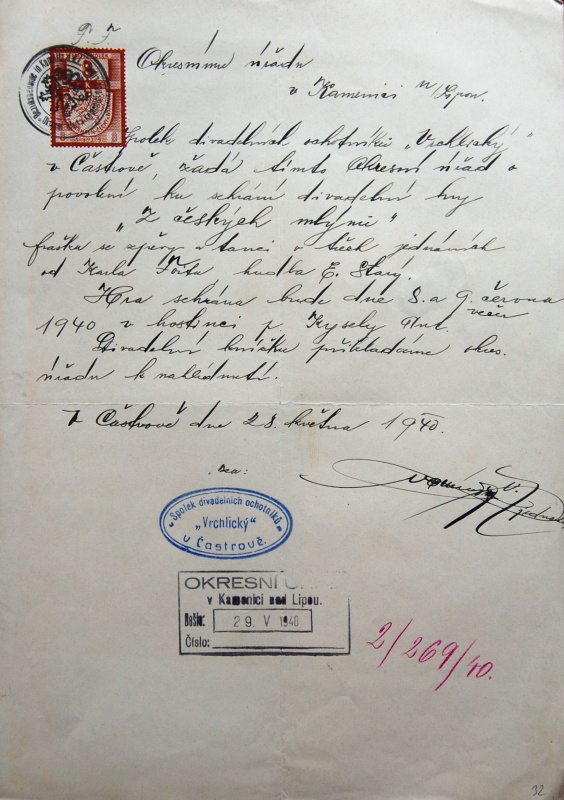 P. T.
Okresnímu úřadu
v Kamenici n/Lipou.
Spolek divadelních ochotníků „Vrchlický"
v Částrově, žádá tímto Okresní úřad o
povolení ku sehrání divadelní hry
„Z českých mlýnů"
fraška se zpěvy a tanci v třech jednáních
od Karla Fořta, hudba E. Starý.
Hra sehrána bude dne 8. a 9. června
večer
1940 v hostinci p. Kysely Ant.
Divadelní knížku přikládáme okres.
úřadu k nahlédnutí.
V Částrově dne 28. května 1940.
Za:
Spolek divadelních ochotníků
„Vrchlický"
v Častrově.
OKRESNÍ
v Kamenici nad Lipou.
Došlo: 29. V 1940
Číslo:
2/269/40.
32